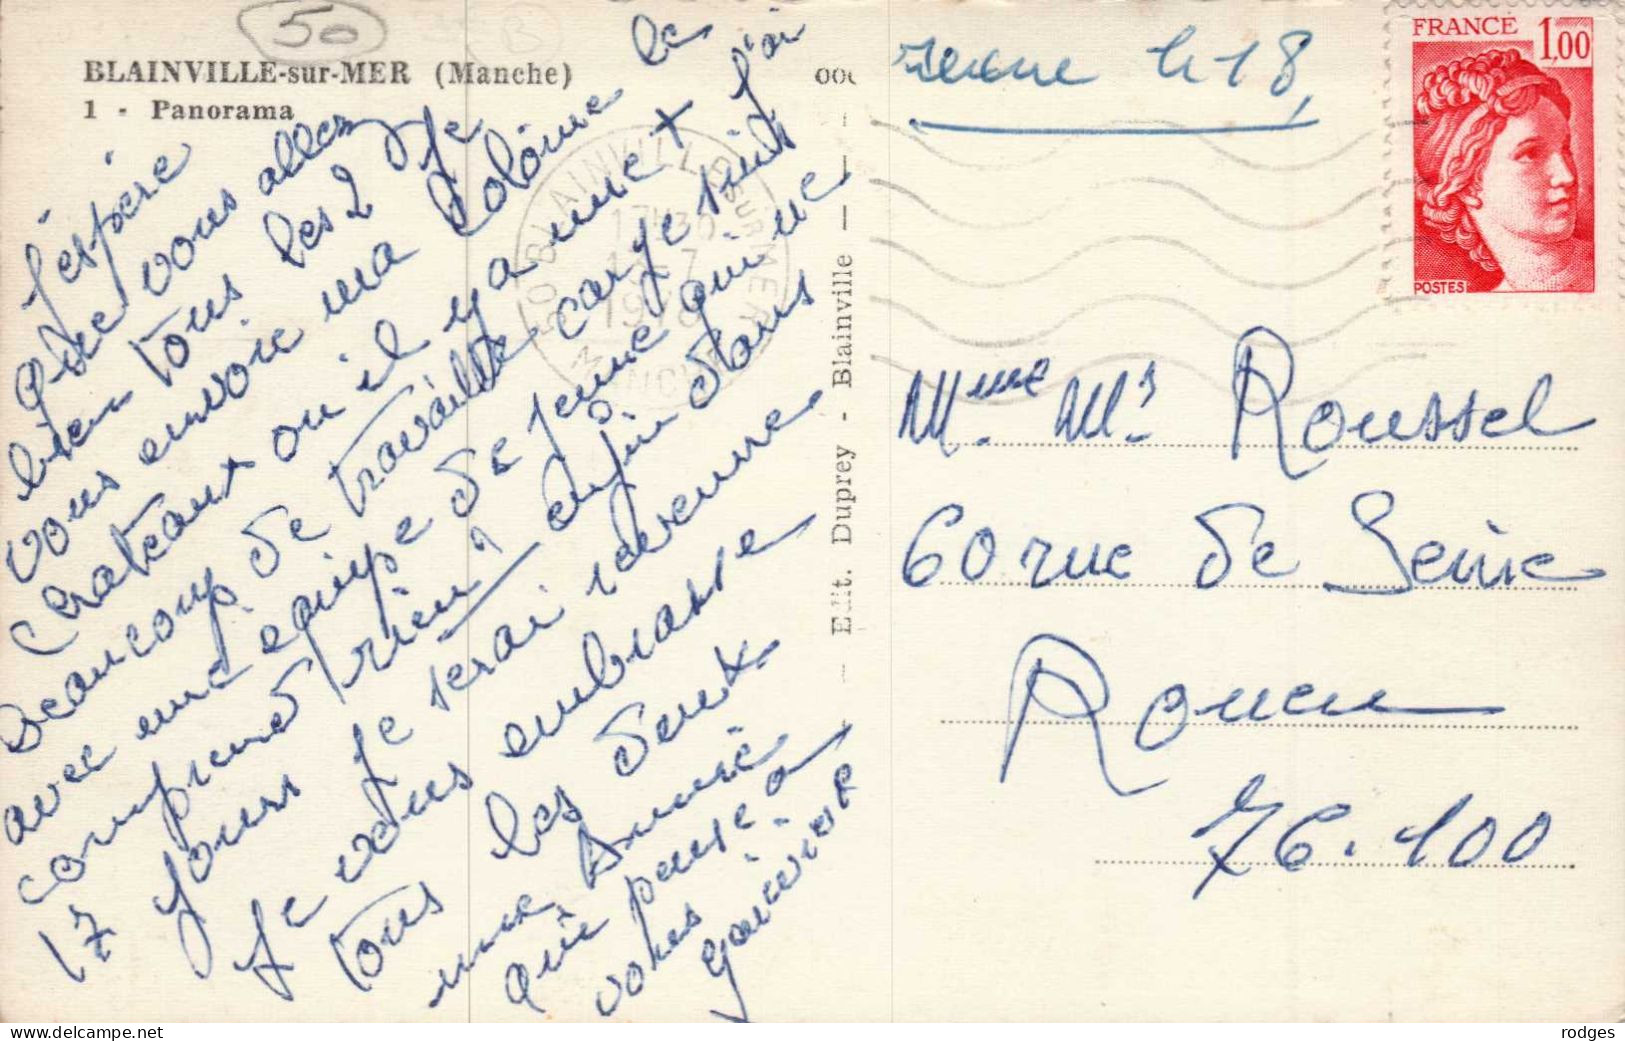 50
BLAINVILLE-sur-MER (Manche)
1 - Panorama
J'espère
que vous allez
bien tous les 2 je
vous envoie ma colonie le
chateaux ou il y a une
beaucoup de travaille car je suis
avec une equipe de jeune qui ne
comprend rien, enfin dans
17 jours je serai revenue
je vous embrasse
tous les deux
une Amie
qui pense a
vous
50 BLAINVILLE SUR MER
17H30
1978
MANCHE
Edit. Duprey - Blainville
418,
FRANCE 1,00
POSTES
Mme Mr Roussel
60 rue de Seine
Rouen
76.100
rodges - delcampe.net